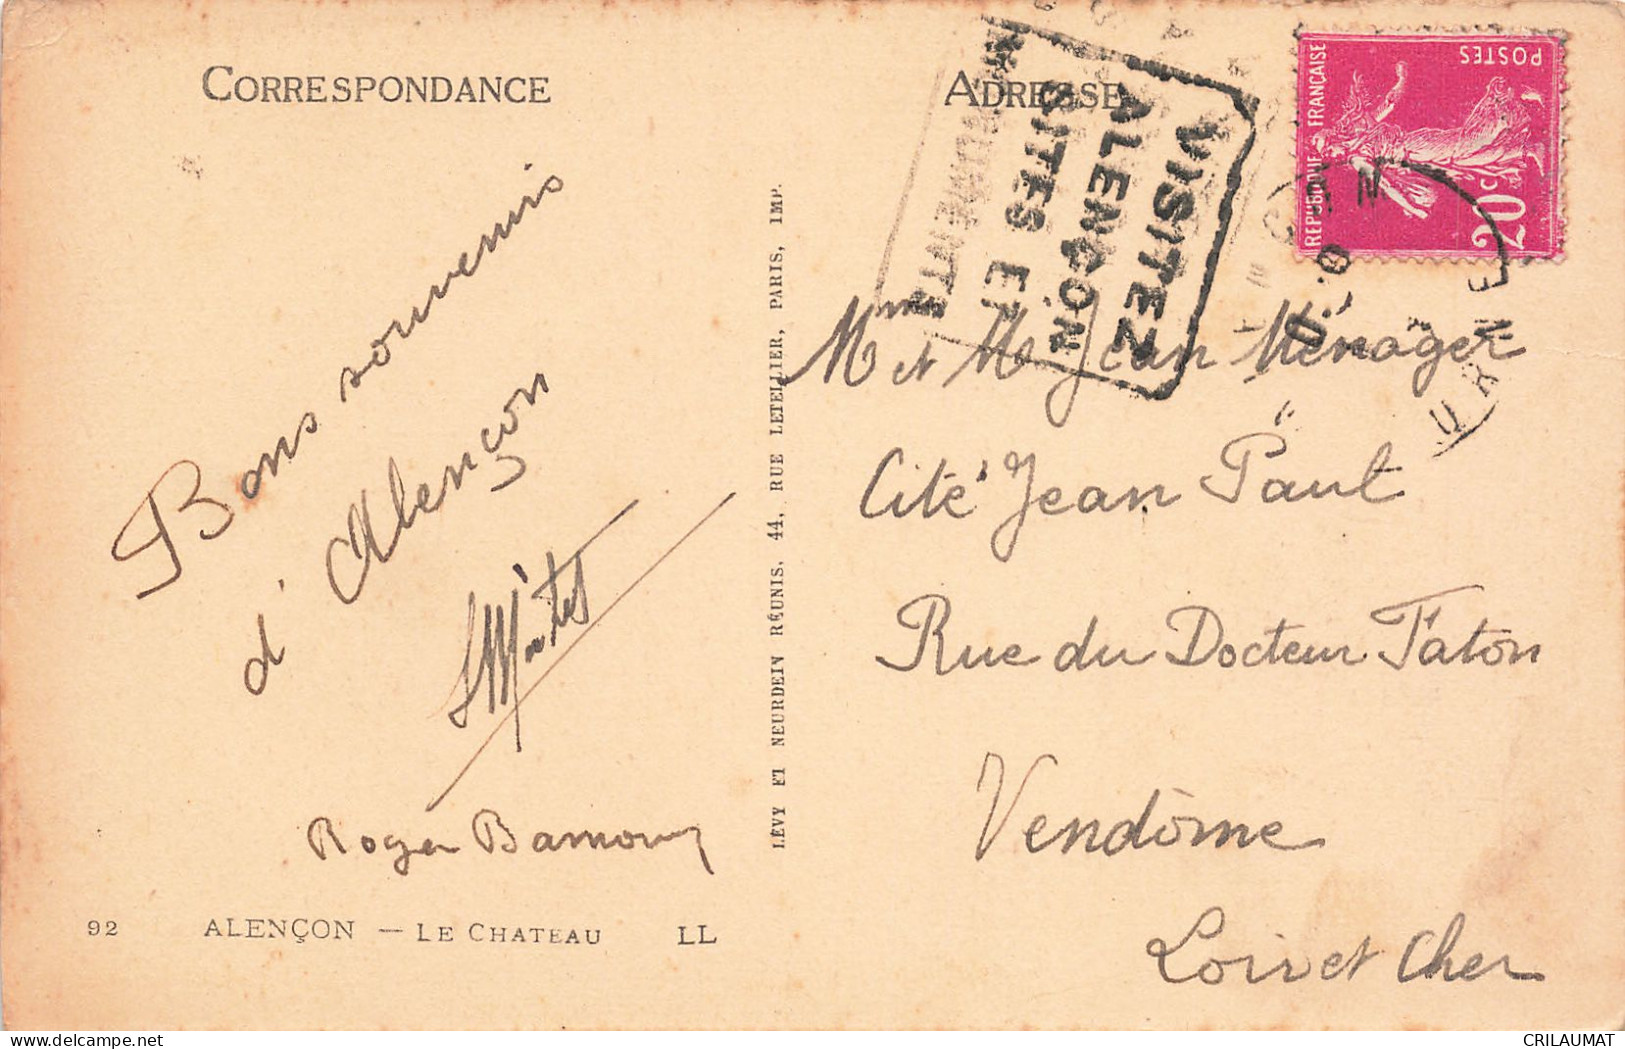 CORRESPONDANCE
Bons souvenirs
d'Alençon
Roger
92 ALENÇON — LE CHATEAU LL
LÉVY ET NEURDEIN RÉUNIS, 44, RUE LETELLIER, PARIS, IMP.
ADRESSE
VISITEZ
ALENÇON
SITES ET
MONUMENTS
POSTES
RÉPUBLIQUE FRANÇAISE
20c
Mme et Mr Jean Ménager
Cité Jean Paul
Rue du Docteur Faton
Vendôme
Loir et Cher
CRILAUMAT